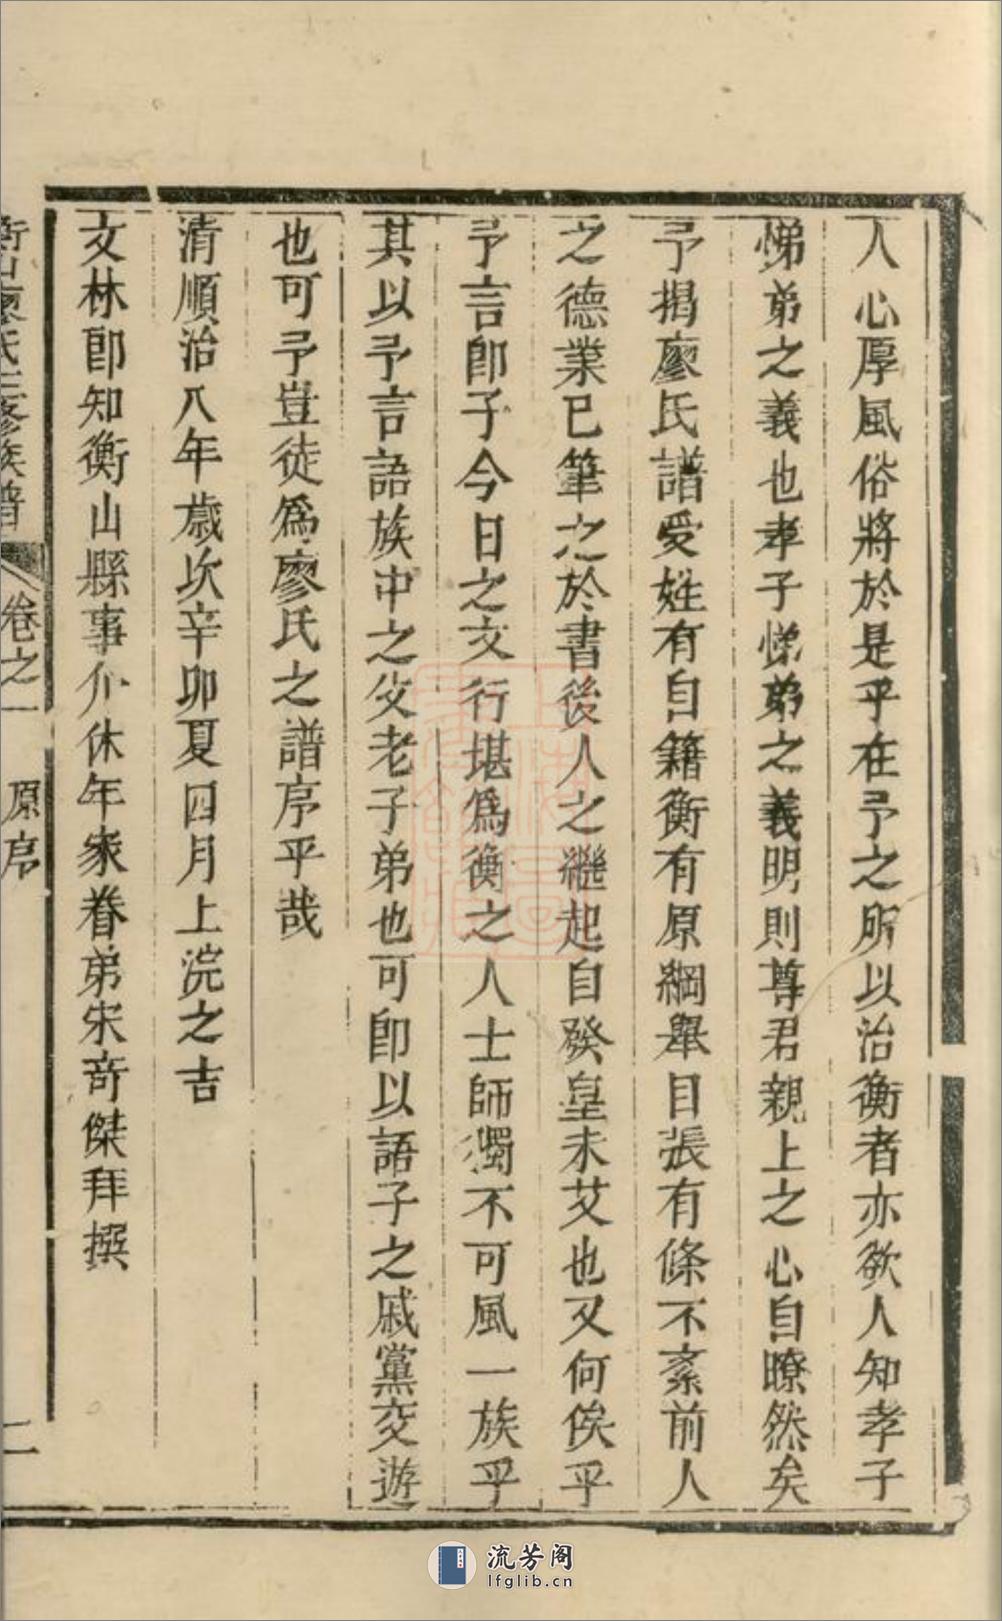 人心厚風俗將於是乎在予之所以治衡者亦欲人知孝子
悌弟之義也孝子悌弟之義明則尊君親上之心自瞭然矣
予揭廖氏譜受姓有自籍衡有原綱舉目張有條不紊前人
之德業已筆之於書後人之繼起自發皇未艾也又何俟乎
予言卽子今日之文行堪爲衡之人士師獨不可風一族乎
其以予言語族中之父老子弟也可卽以語子之戚黨交遊
也可予豈徒爲廖氏之譜序乎哉
清順治八年歲次辛卯夏四月上浣之吉
文林郎知衡山縣事介休年家眷弟宋奇傑拜撰
衡山廖氏三修族譜 卷之一 原序 二
流芳阁
lfglib.cn